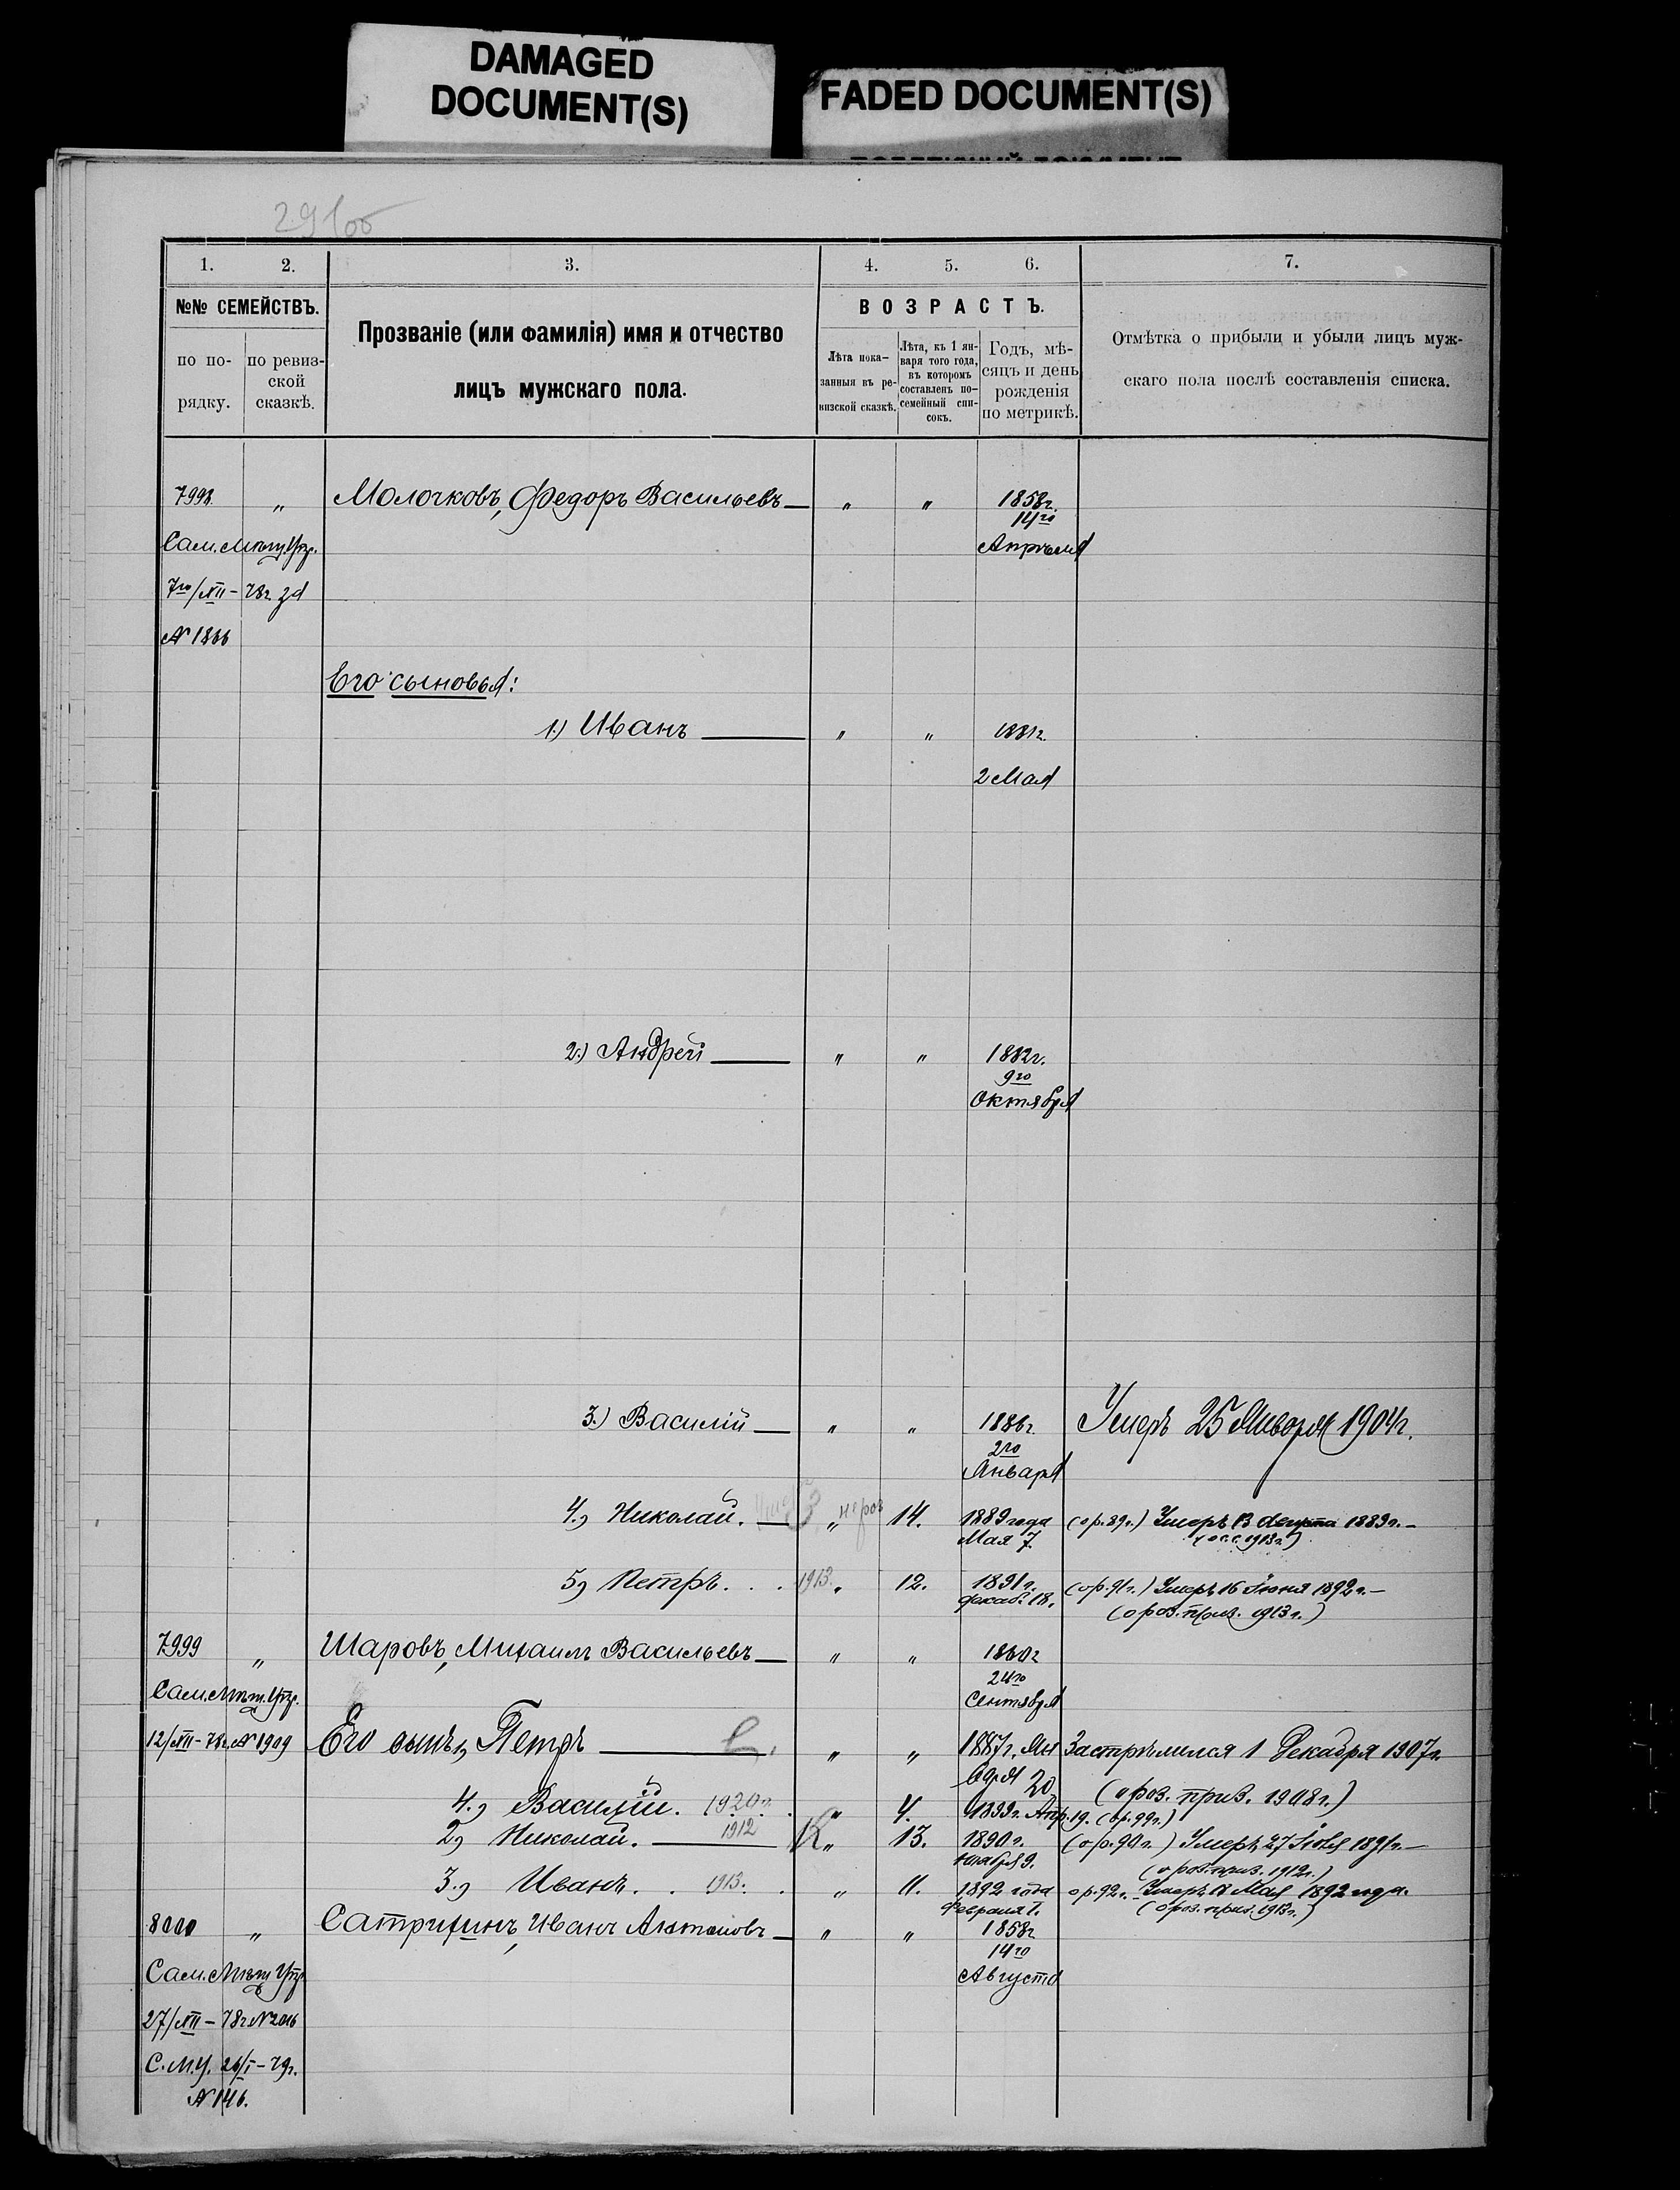 DAMAGED
DOCUMENT(S)
FADED DOCUMENT(S)
29 об
1. 2. 3. 4. 5. 6. 7.
№№ СЕМЕЙСТВЪ.
по по-
рядку.
по ревиз-
ской
сказкѣ.
Прозваніе (или фамилія) имя и отчество
лицъ мужскаго пола.
ВОЗРАСТЪ.
Лѣта пока-
занныя въ ре-
визской сказкѣ.
Лѣта, къ 1 ян-
варя того года,
въ которомъ
составленъ по-
семейный спи-
сокъ.
Годъ, мѣ-
сяцъ и день
рожденія
по метрикѣ.
Отмѣтка о прибыли и убыли лицъ муж-
скаго пола послѣ составленія списка.
7998 „ Молочковъ, Федоръ Васильевъ — „ „ 1858г.
14го
Сам. Мѣщ. Упр. Апрѣля
7го/XII - 78г. за
№ 1866
Его сыновья:
1.) Иванъ — „ „ 1881г.
2 Мая
2.) Андрей — „ „ 1882г.
9го
Октября
3.) Василій — „ „ 1886г. Умеръ 25 Января 1904г.
2го
Января
4., Николай. — „ 14. 1889 года (о р. 89г.) Умеръ 13 Августа 1889г. —
Мая 7.
5, Петръ. . . 1913. „ 12. 1891г. (о р. 91г.) Умеръ 16 Іюня 1892г. —
Декаб. 18. (о роз. приз. 1913г.)
7999 „ Шаровъ, Михаилъ Васильевъ — „ „ 1860г
24го
Сам. Мѣщ. Упр. Сентября
12/XII - 78г. № 1909 Его сынъ, Петръ — „ „ 1887г. Ян Застрѣлился 1 Декабря 1907г.
варя 20 (о роз. приз. 1908г.)
4., Василій. 1920г. „ 4. 1899г. Апр. 19. (о р. 99г.)
2, Николай. — 1912 К „ 13. 1890г. (о р. 90г.) Умеръ 27 Іюля 1891г. —
ноября 9. (о роз. приз. 1912г.)
3., Иванъ. . 1913. . „ 11. 1892 года о р. 92г. Умеръ 18 Мая 1892 года.
Февраля 1. (о роз. приз. 1913г.)
8000 „ Сатрихинъ, Иванъ Антоновъ — „ „ 1858г
14го
Сам. Мѣщ Упр. Августа
27/XII - 78г № 2016
С. М. У. 26/I - 79г.
№ 146.